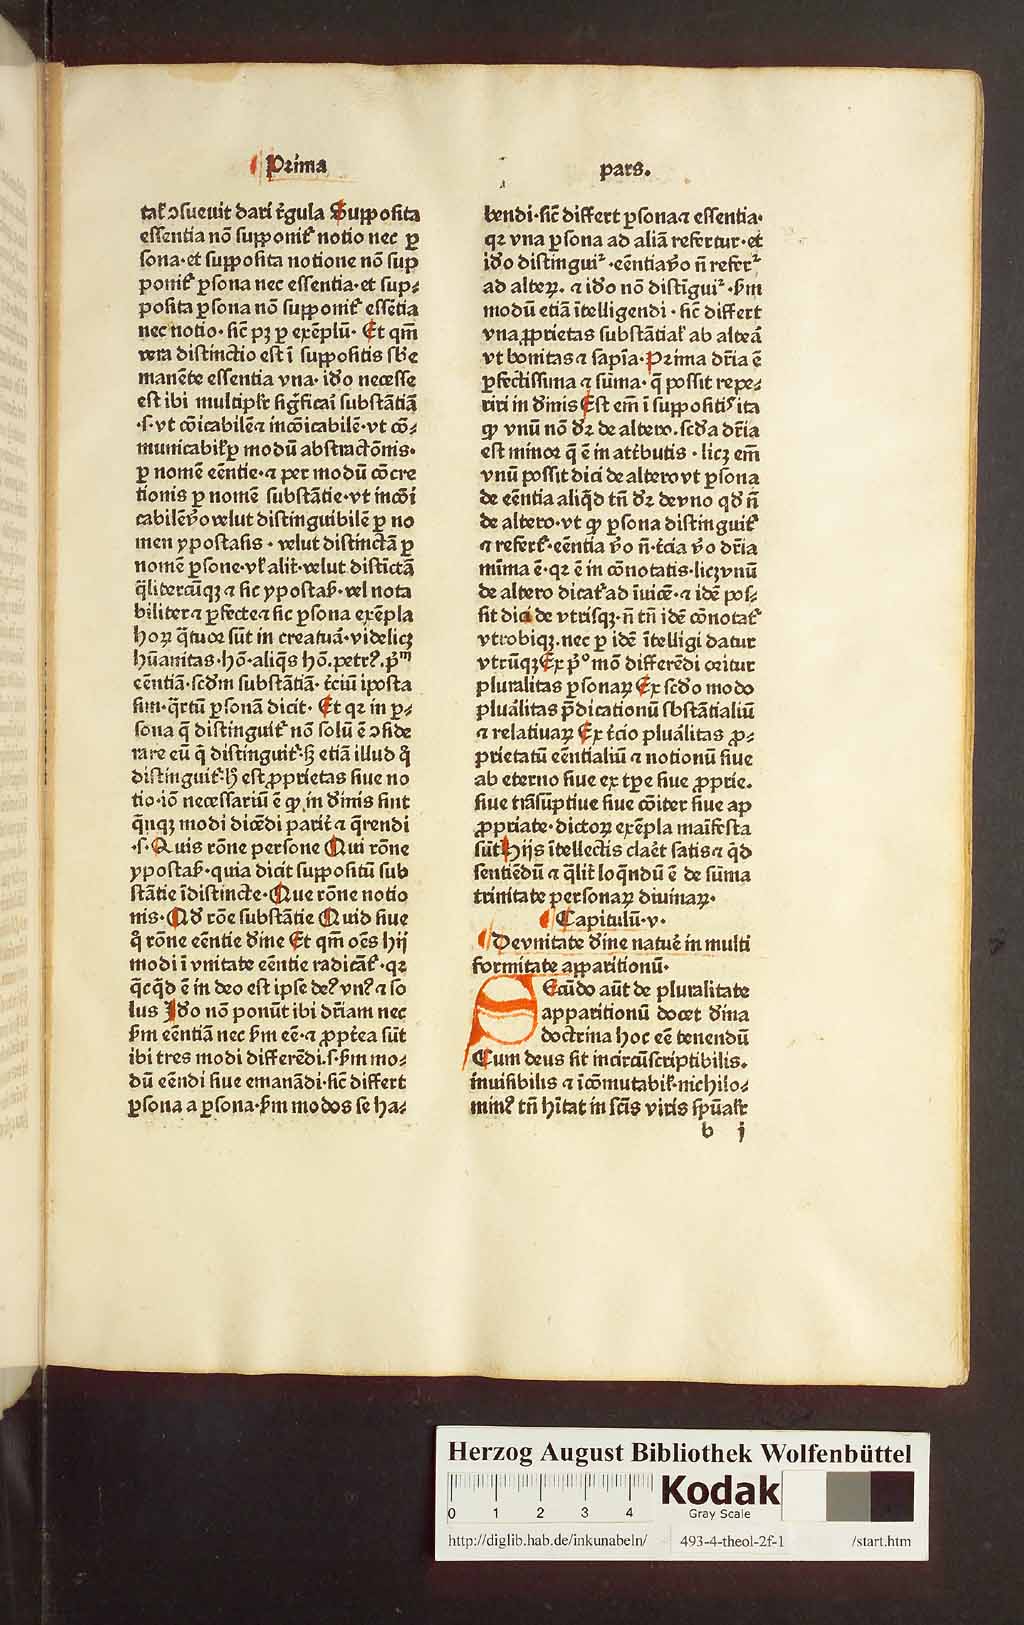 Prima pars.
tat̃ ɔsueuit dari r̃gula Supposita
essentia nō supponit̃ notio nec ꝑ
sona·et supposita notione nō sup
ponit̃ ꝑsona nec essentia·et sup⸗
posita ꝑsona nō supponit̃ essētia
nec notio·sic̃ pꝫ ꝑ exēplū· Et qm̄
vera distinctio est ī suppositis sb̃e
manēte essentia vna· iđo necesse
est ibi multiplr̃ sigficai substātiā
·s·vt cōicabilē⁊ incōicabilē·vt cō⸗
municabil̃ꝑ modū abstractōnis·
ꝑ nomē eēntie·⁊ per modū cōcre
tionis ꝑ nomē substātie·vt incōi
cabilēv̄o velut distinguibilē ꝑ no
men ypostasis· velut distinctā ꝑ
nomē ꝑsone·vl̃ alit̃·velut distictā
q̄litercūqꝫ ⁊ sic ypostas̃·vel nota
biliter⁊ ꝑfecte⁊ sic ꝑsona exēpla
hoꝝ q̄tuor sūt in creatuā·videlicꝫ
hūanitas·hō·aliq̄s hō.petrꝰ.p̄ᵐ
eēntiā·scđm substātiā· t̄ciū iposta
sim·q̄rtū ꝑsonā dicit· Et qꝛ in ꝑ⸗
sona q̄ distinguit̃ nō solū ē ɔside
rare eū q̄ distinguit̃·sꝫ etiā illud q̊
distinguit̃·h̄ est ꝓprietas siue no
tio·iō necessariū ē ꝙ in đinis sint
q̄nqꝫ modi dicēdi parit̃ ⁊ q̄rendi
·s·Quis rōne persone Qui rōne
ypostas̃·quia dicit suppositū sub
stātie īdistincte·Que rōne notio
nis·Qđ rōe substātie Quid siue
q̊ rōne eēntie đine Et qm̄ oēs hij
modi ī vnitate eēntie radicāt̃·qꝛ
q̄cq̄d ē in deo est ipse deꝰ vnꝰ ⁊ so
lus Iđo nō ponūt ibi dr̄iam nec
ẜm eēntiā nec ẜm eē·⁊ ꝓpt̃ea sūt
ibi tres modi differēdi.s·ẜm mo⸗
dū eēndi siue emanādi·sic̃ differt
ꝑsona a ꝑsona·ẜm modos se ha⸗
bendi·sic̃ differt ꝑsona⁊ essentia·
qꝛ vna ꝑsona ad aliā refertur·et
iđo distinguiᷣ ·eēntiav̄o n̄ referᷣ
ad alteꝝ. ⁊ iđo nō distīguiᷣ ·ẜm
modū etiā ītelligendi · sic̃ differt
vna ꝓprietas substātial̃ ab alteā
vt bonitas ⁊ sapīa·Prima dr̄ia ē
ꝑfectissima ⁊ sūma· q̄ possit repe⸗
riri in đinis Est em̄ ī suppositis̃ ita
ꝙ vnū nō dꝛ de altero. scđa dr̄ia
est minor q̄ ē in attributis · licꝫ em̄
vnū possit dici de altero vt ꝑsona
de eēntia aliq̄d tn̄ dꝛ de vno qđ n̄
de altero·vt ꝙ ꝑsona distinguit̃
⁊ refert̃·eēntia v̄o n̄·t̄cia v̄o dr̄ia
mīma ē·qꝛ ē in cōnotatis·licꝫvnū
de altero dicat̃ ad īuicē·⁊ idē pos⸗
sit dici de vtrisqꝫ·n̄ tn̄ idē cōnotat̃
vtrobiqꝫ.nec ꝑ idē ītelligi datur
vtrūqꝫ Ex p̄ᵒ mō differēdi oritur
pluralitas ꝑsonaꝝ Ex scđo modo
pluālitas p̄dicationū sbstātialiū
⁊ relatiuaꝝ Ex t̄cio pluālitas ꝓ⸗
prietatū eēntialiū ⁊ notionū siue
ab eterno siue ex tꝑe siue ꝓprie.
siue trāsūptiue siue cōiter siue ap
ꝓpriate·dictoꝝ exēpla maīfesta
sūt Hijs ītellectis claēt satis⁊ q̄d
sentiēdū ⁊ q̄lit̃ loq̄ndū ē de sūma
trinitate personaꝝ diuinaꝝ·
Capitulū·v·
De vnitate đine natuē in multi
formitate apparitionū·
Secūdo aūt de pluralitate
apparitionū docet đina
doctrina hoc eē tenendū
Cum deus sit incircūscriptibilis.
inuisibilis ⁊ īcōmutabil̃·nichilo⸗
minꝰ tn̄ hītat in scīs viris spūalr̃
b j
Herzog August Bibliothek Wolfenbüttel
0 1 2 3 4
Kodak
Gray Scale
http://diglib.hab.de/inkunabeln/ 493-4-theol-2f-1 /start.htm